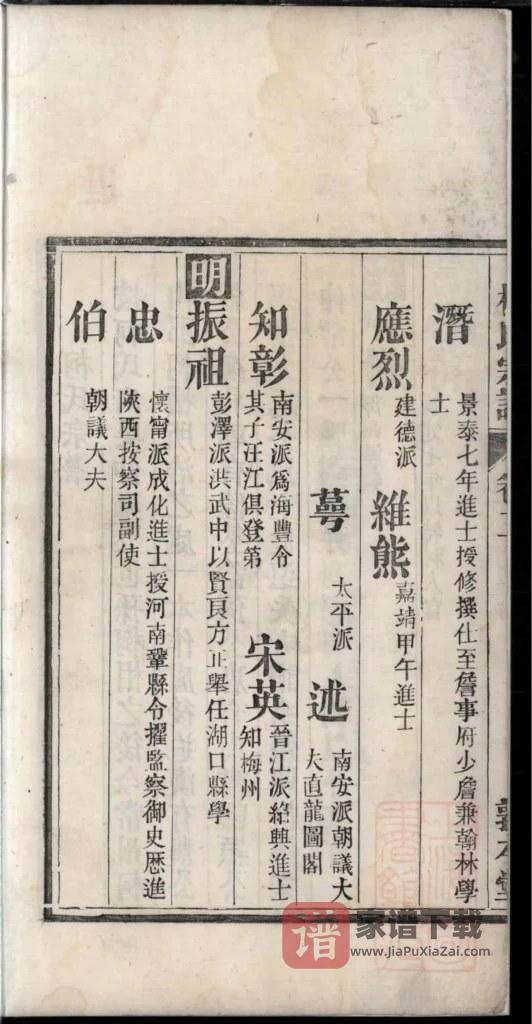 柯氏宗譜
卷二
敦本堂
潛
景泰七年進士授修撰仕至詹事府少詹兼翰林學
士
應烈
建德派
維熊
嘉靖甲午進士
萼
太平派
述
南安派朝議大
夫直龍圖閣
知彰
南安派爲海豐令
其子汪江俱登第
宋英
晉江派紹興進士
知梅州
明振祖
彭澤派洪武中以賢良方正舉任湖口縣學
忠
懷甯派成化進士授河南鞏縣令擢監察御史歷進
陝西按察司副使
伯
朝議大夫
谱
家谱下载
www.JiaPuXiaZai.com